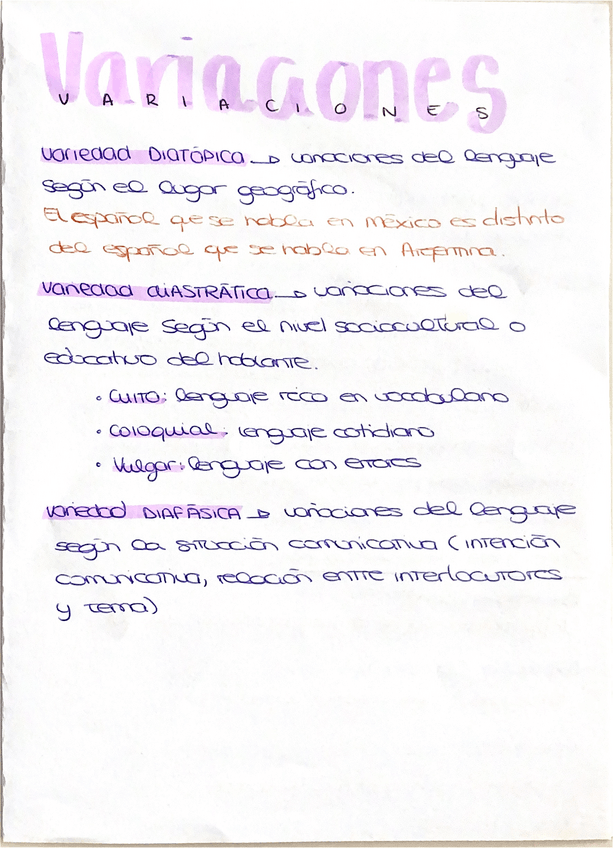 Variaciones
VARIACIONES
variedad DIATÓPICA → variaciones del lenguaje
según el lugar geográfico.
El español que se habla en méxico es distinto
del español que se habla en Argentina.
variedad DIASTRÁTICA → variaciones del
lenguaje según el nivel sociocultural o
educativo del hablante.
• CULTO: lenguaje rico en vocabulario
• Coloquial: lenguaje cotidiano
• Vulgar: lenguaje con errores
variedad DIAFÁSICA → variaciones del lenguaje
según la situación comunicativa (intención
comunicativa, relación entre interlocutores
y tema)